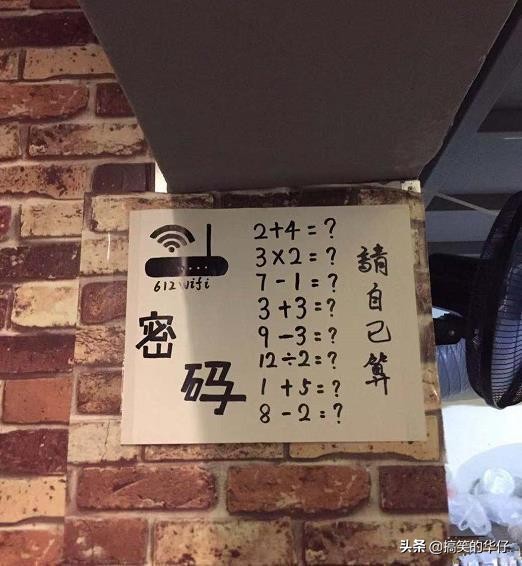 612wifi
密
码
2+4=?
3×2=?
7-1=?
3+3=?
9-3=?
12÷2=?
1+5=?
8-2=?
請自己算
头条 @搞笑的华仔